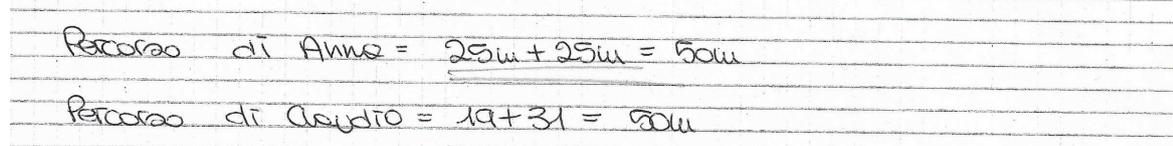 Percorso di Anna = 25m + 25m = 50m
Percorso di Claudio = 19+31 = 50m